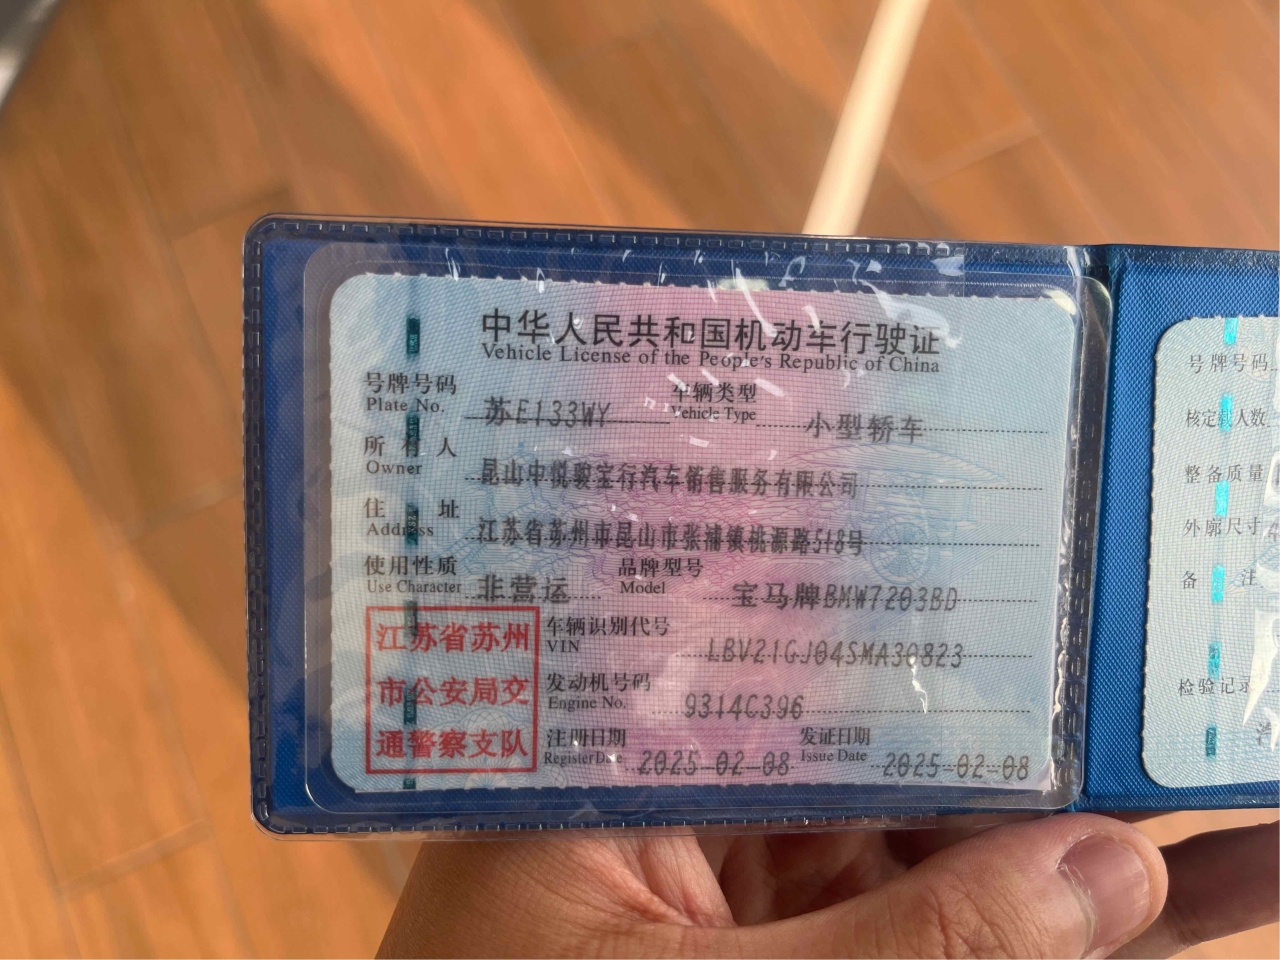 中华人民共和国机动车行驶证
Vehicle License of the People's Republic of China
号牌号码 Plate No. 苏E133WY 车辆类型 Vehicle Type 小型轿车
所有人 Owner 昆山中悦骏宝行汽车销售服务有限公司
住址 Address 江苏省苏州市昆山市张浦镇桃源路518号
使用性质 Use Character 非营运 品牌型号 Model 宝马牌BMW7203BD
车辆识别代号 VIN LBV21GJ04SMA30823
发动机号码 Engine No. 9314C396
注册日期 Register Date 2025-02-08 发证日期 Issue Date 2025-02-08
江苏省苏州
市公安局交
通警察支队
号牌号码
核定载人数
整备质量
外廓尺寸
备注
检验记录